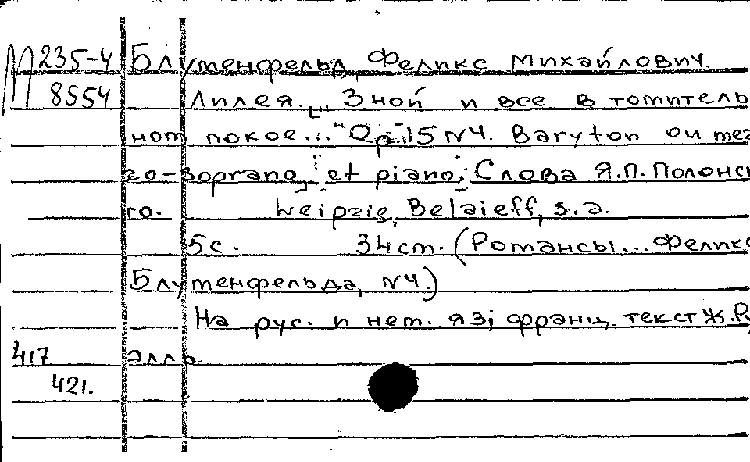 М235-4 Блуменфельд, Феликс Михайлович.
8554 Лилея. „Зной и все в томитель
ном покое..." Op. 15 N4. Baryton ou mez
zo-soprano et piano; Слова Я.П. Полонск
го. Leipzig, Belaieff, s.a.
5с. 34 cm. (Романсы... Феликс
Блуменфельда, N4.)
На рус. и нем. яз; франц. текст Ж. Р
417 элль
421.